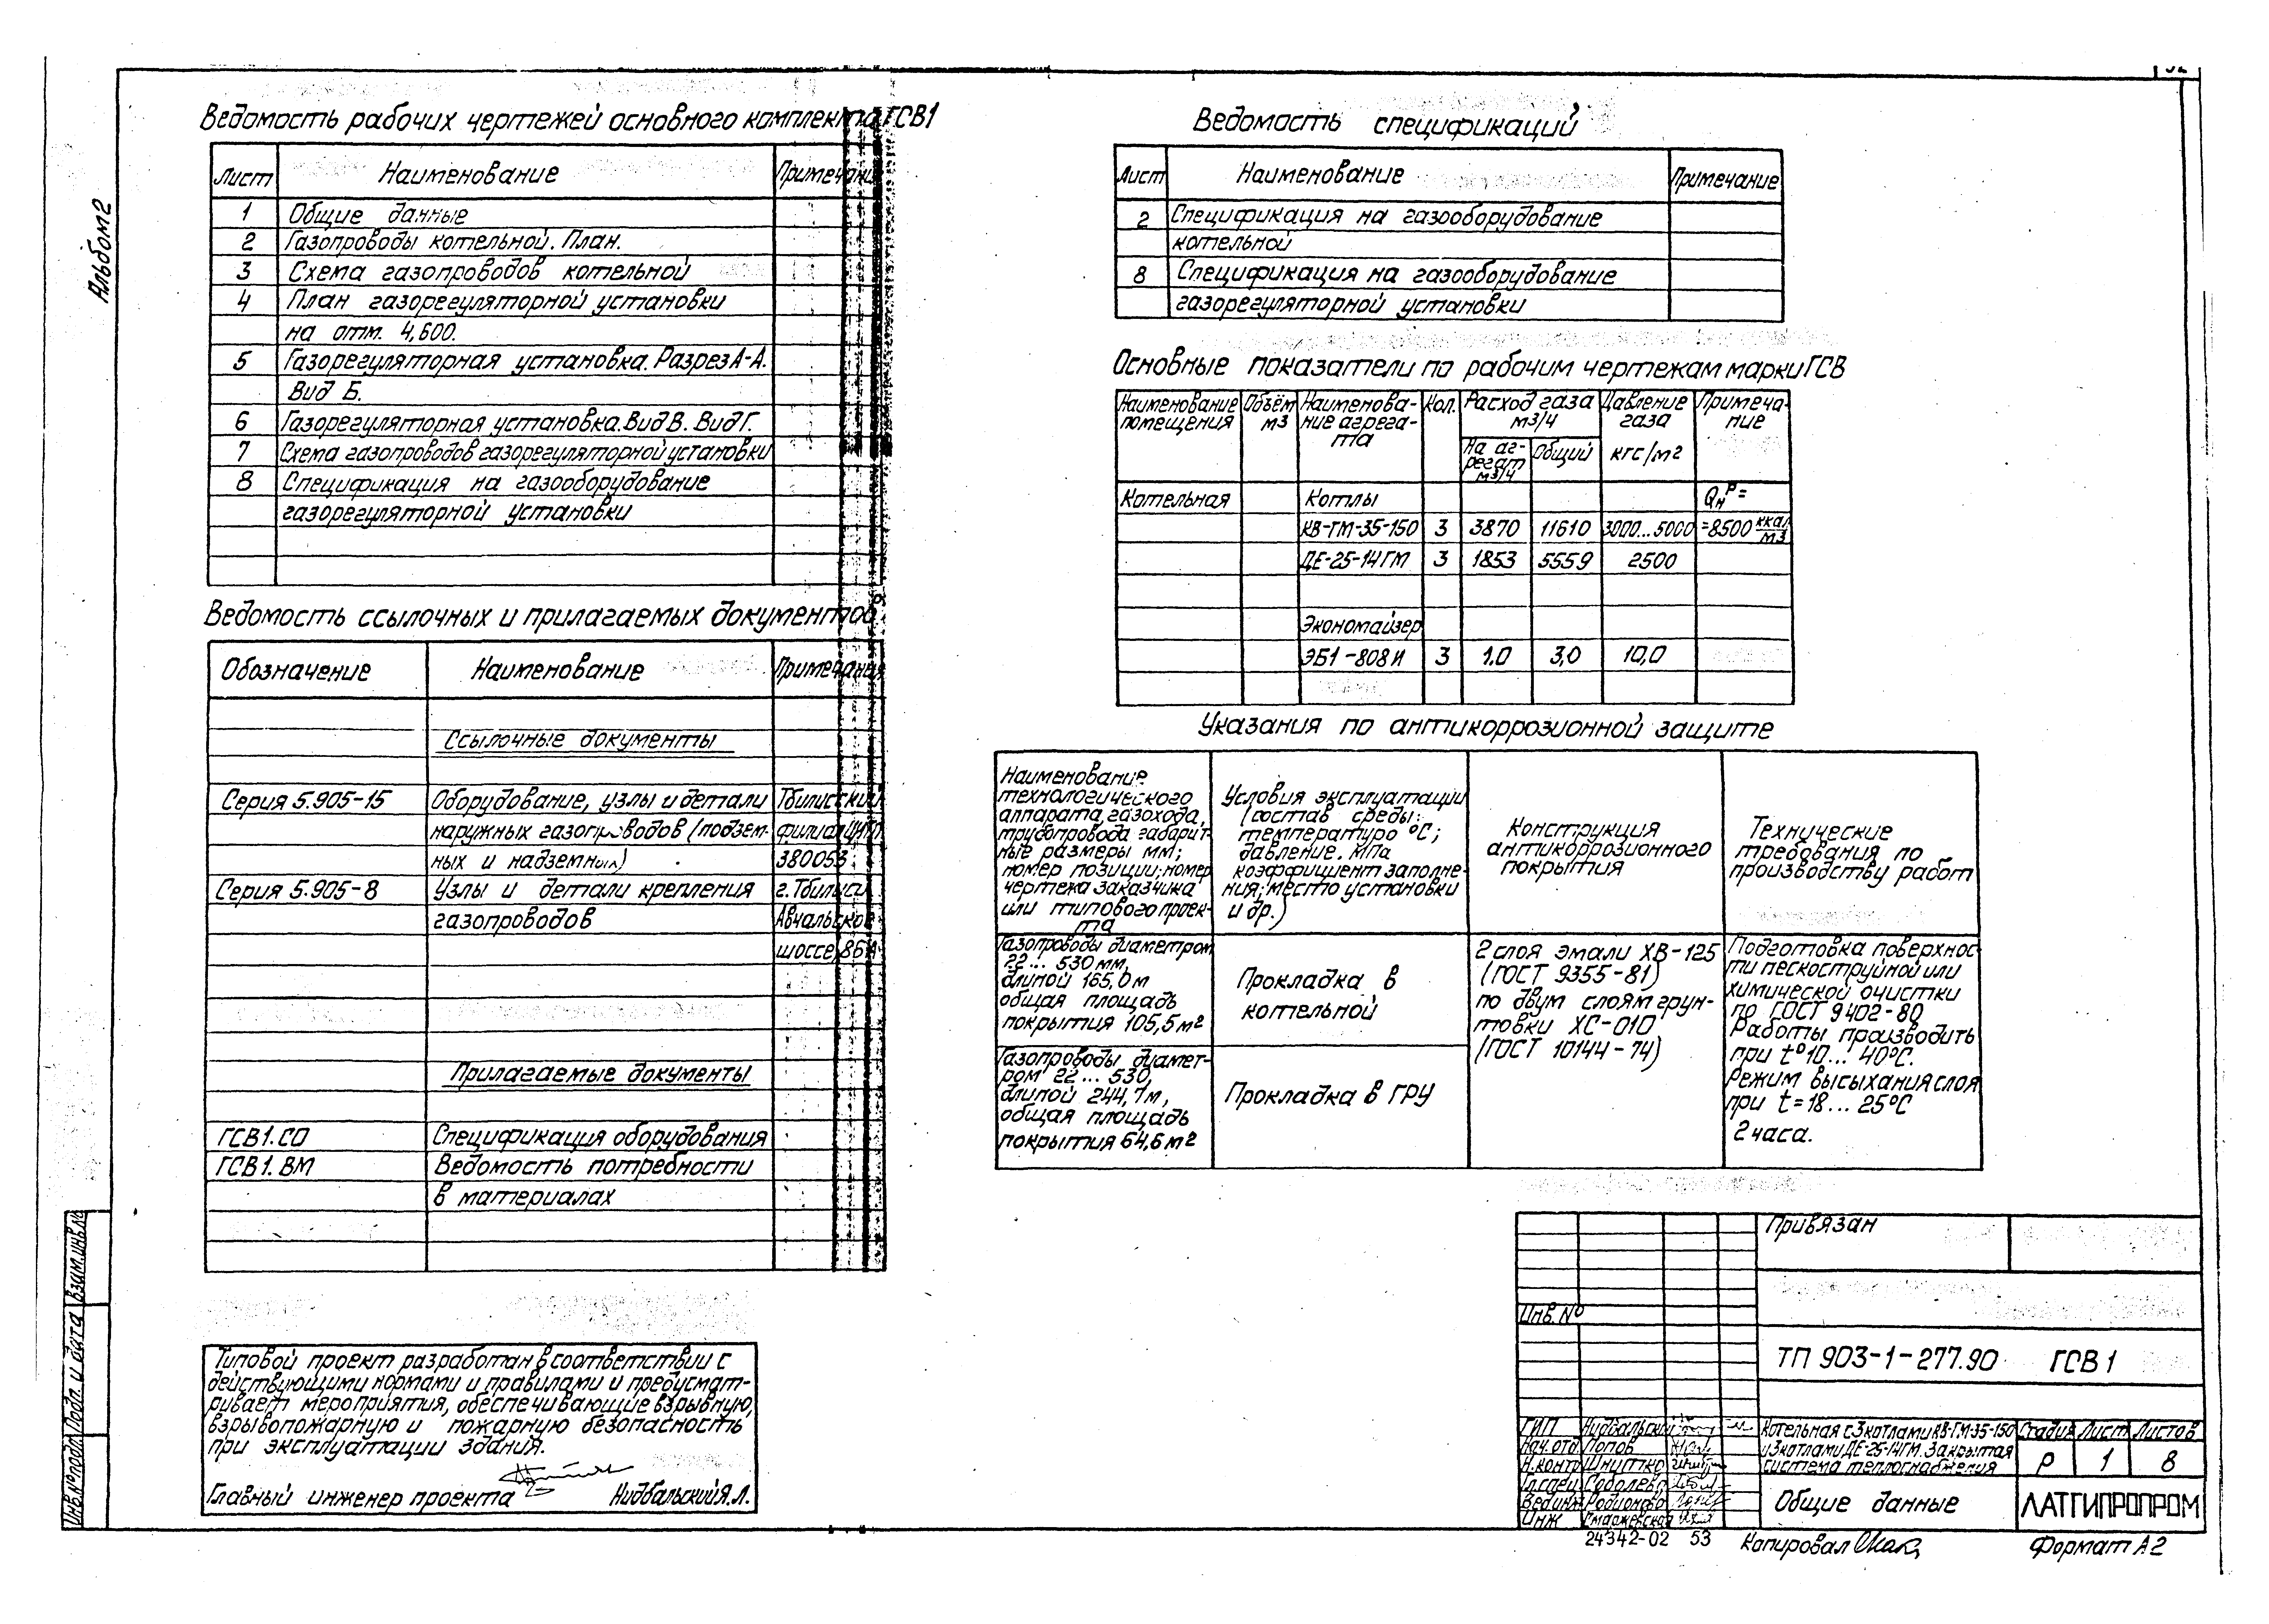 Альбом 2
Ведомость рабочих чертежей основного комплекта ГСВ1
Лист Наименование Примечание
1 Общие данные
2 Газопроводы котельной. План.
3 Схема газопроводов котельной
4 План газорегуляторной установки
на отм. 4,600.
5 Газорегуляторная установка. Разрез А-А.
Вид Б.
6 Газорегуляторная установка. Вид В. Вид Г.
7 Схема газопроводов газорегуляторной установки
8 Спецификация на газооборудование
газорегуляторной установки
Ведомость ссылочных и прилагаемых документов
Обозначение Наименование Примечания
Ссылочные документы
Серия 5.905-15 Оборудование, узлы и детали Тбилисский
наружных газопроводов (подзем- филиал
ных и надземных) 380053
Серия 5.905-8 Узлы и детали крепления г. Тбилиси
газопроводов Авчальское
шоссе, 86А
Прилагаемые документы
ГСВ1.СО Спецификация оборудования
ГСВ1. ВМ Ведомость потребности
в материалах
Типовой проект разработан в соответствии с
действующими нормами и правилами и предусмат-
ривает мероприятия, обеспечивающие взрывную,
взрывопожарную и пожарную безопасность
при эксплуатации здания.
Главный инженер проекта Нидбальский Я.Л.
Ведомость спецификаций
Лист Наименование Примечание
2 Спецификация на газооборудование
котельной
8 Спецификация на газооборудование
газорегуляторной установки
Основные показатели по рабочим чертежам марки ГСВ
Наименование Объём Наименова- Кол. Расход газа Давление Примеча-
помещения м3 ние агрега- м3/ч газа ние
та На аг- Общий кгс/м2
регат
м3/ч
Котельная Котлы Qнр =
КВ-ГМ-35-150 3 3870 11610 3000...5000 =8500 ккал/м3
ДЕ-25-14ГМ 3 1853 5559 2500
Экономайзер
ЭБ1-808И 3 1.0 3,0 10,0
Указания по антикоррозионной защите
Наименование
технологического
аппарата, газохода,
трубопровода габарит-
ные размеры мм;
номер позиции; номер
чертежа заказчика
или типового проек-
та
Условия эксплуатации
(состав среды:
температура °С;
давление. МПа
коэффициент заполне-
ния; место установки
и др.)
Конструкция
антикоррозионного
покрытия
Технические
требования по
производству работ
Газопроводы диаметром
22... 530 мм,
длиной 165,0м
общая площадь
покрытия 105,5 м2
Прокладка в
котельной
2 слоя эмали ХВ-125
(ГОСТ 9355-81)
по двум слоям грун-
товки ХС-010
(ГОСТ 10144-74)
Подготовка поверхнос-
ти пескоструйной или
химической очистки
по ГОСТ 9402-80
Работы производить
при t° 10... 40°С.
Режим высыхания слоя
при t=18... 25°С
2 часа.
Газопроводы диамет-
ром 22... 530,
длиной 244,7м,
общая площадь
покрытия 64,6 м2
Прокладка в ГРУ
Привязан
Инв. №
ТП 903-1-277.90 ГСВ 1
ГИП Нидбальский
Нач. отд Попов
Н.контр Шнитко
Гл.спец Соболева
Вед.инж Родионова
Инж Смаржевская
Котельная с 3 котлами КВ-ГМ-35-150
и 3 котлами ДЕ-25-14ГМ. Закрытая
система теплоснабжения
Стадия Лист Листов
Р 1 8
Общие данные
ЛАТГИПРОПРОМ
24342-02 53
Копировал
Формат А2
Инв.№подл. Подп. и дата Взам.инв.№